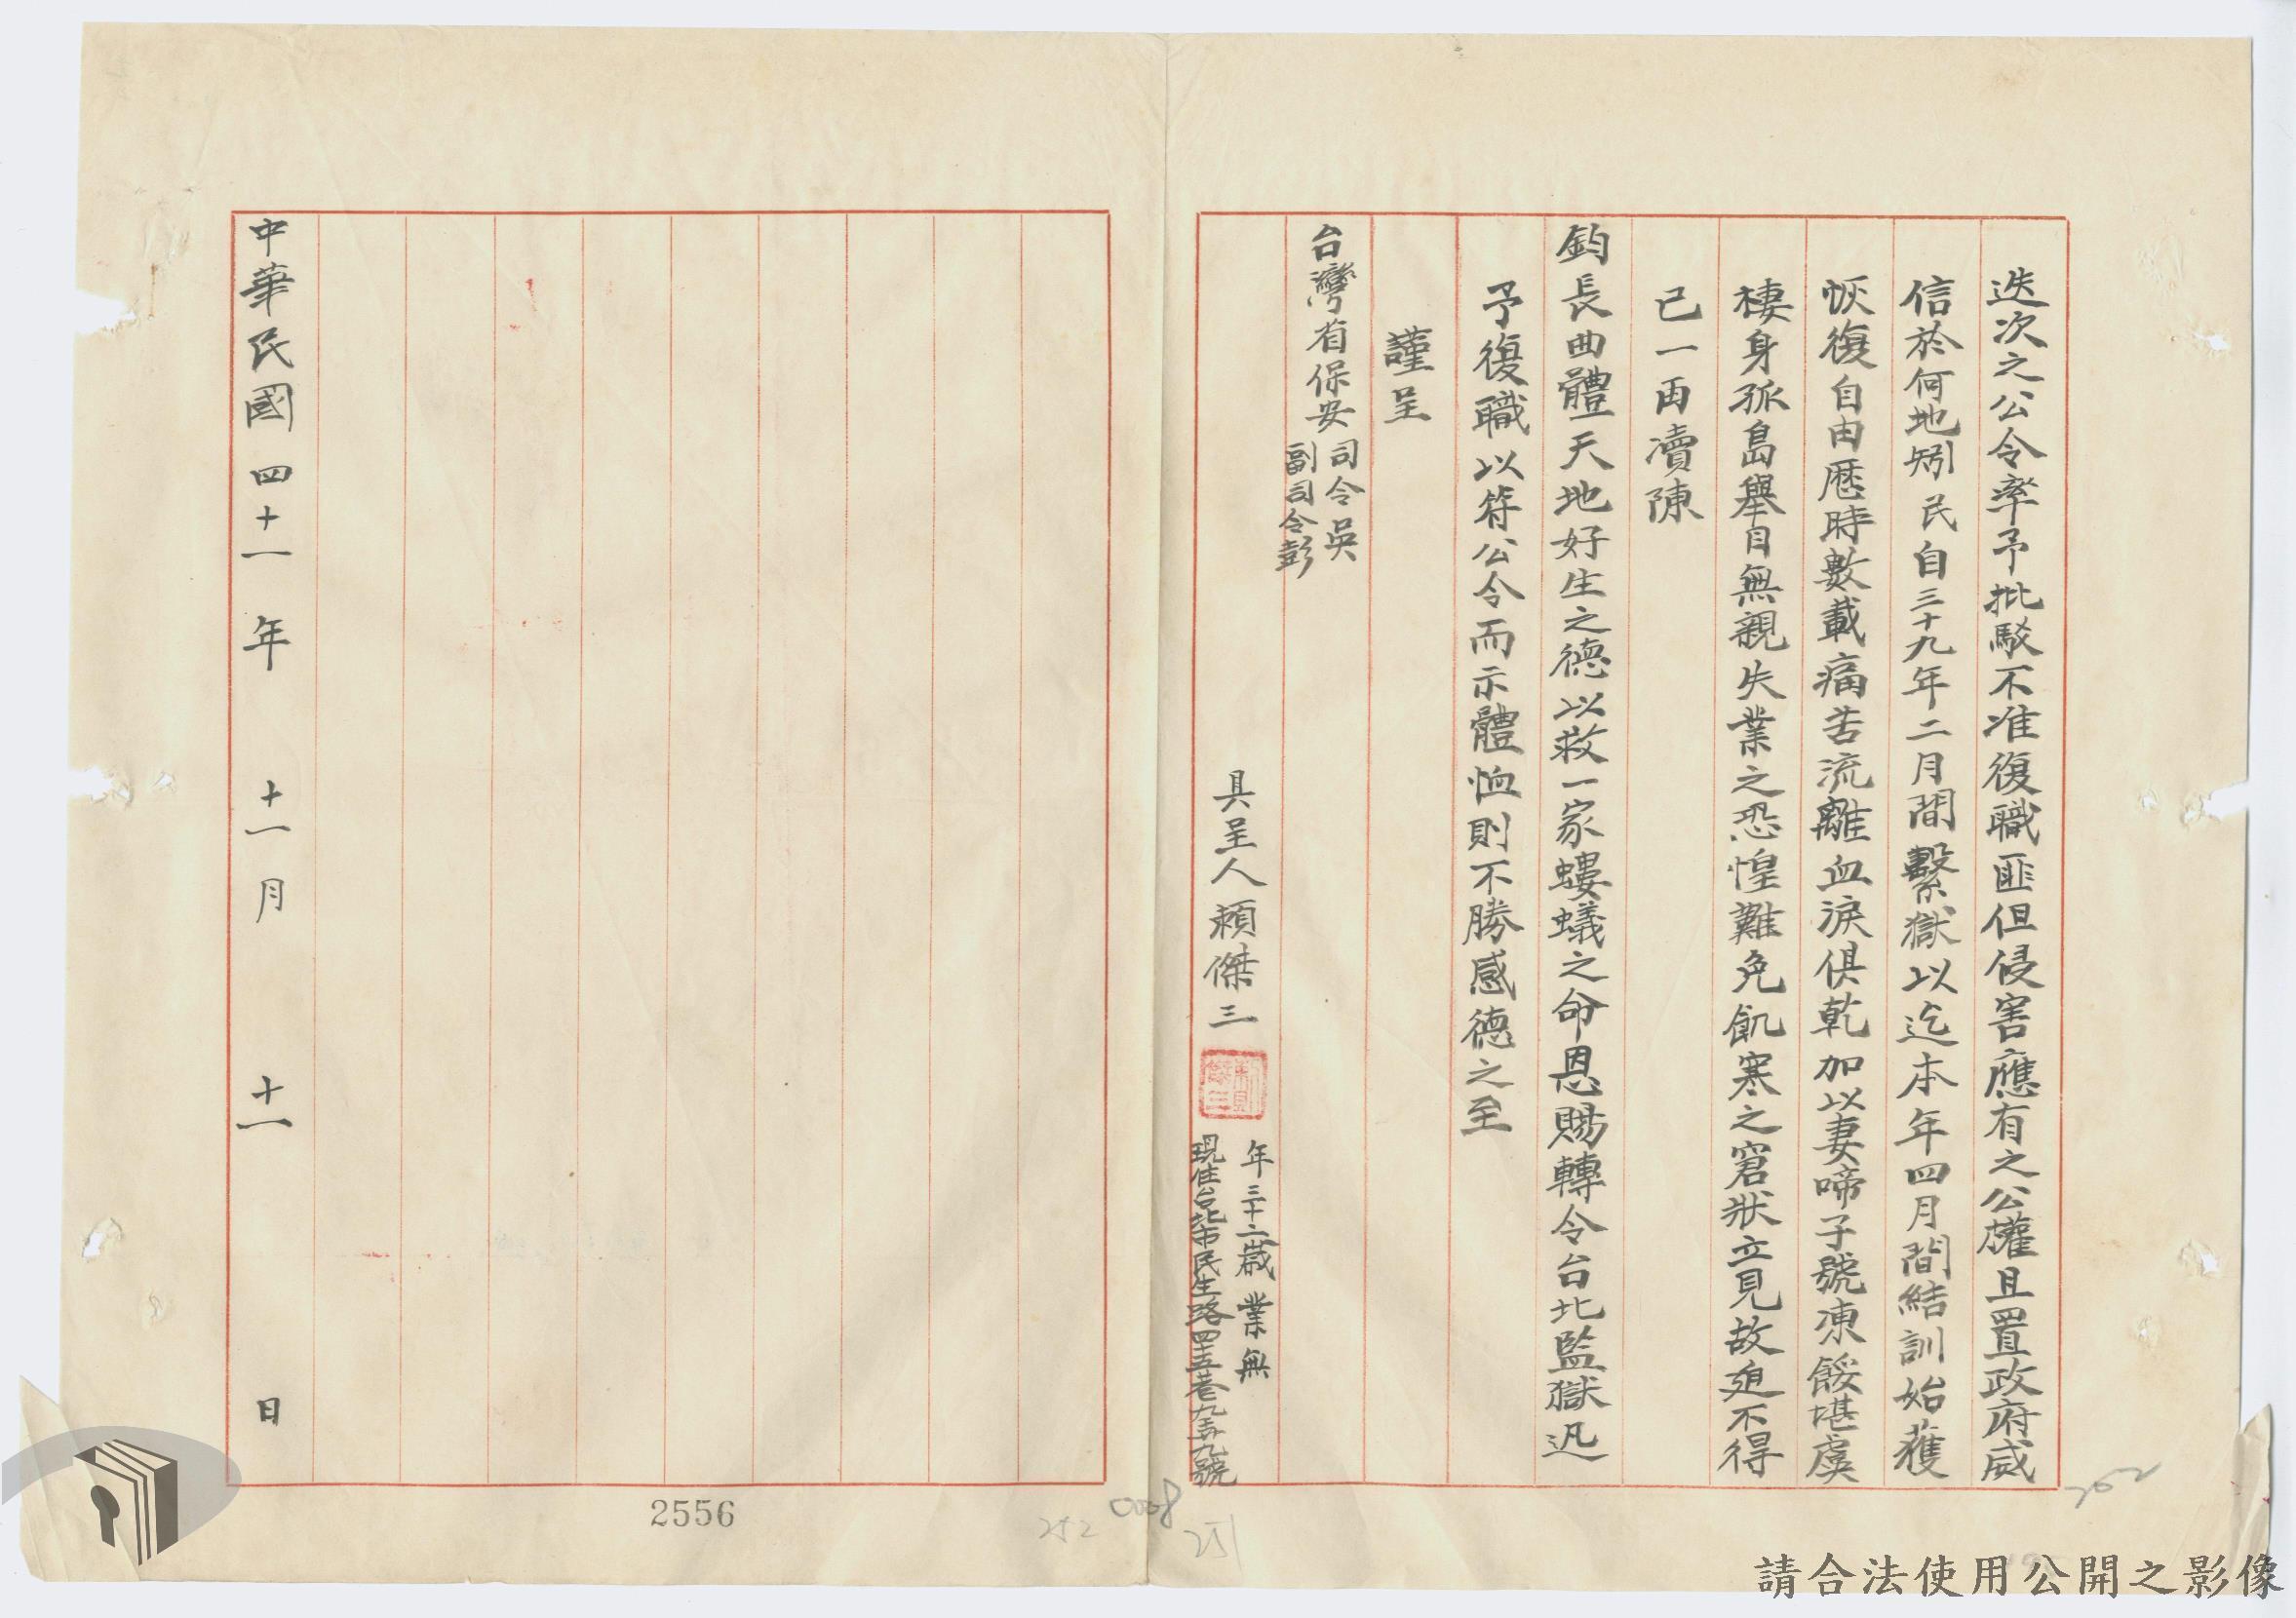 迭次之公令率予批駁不准復職匪但侵害應有之公權且置政府威
信於何地矧民自三十九年二月間繫獄以迄本年四月間結訓始獲
恢復自由歷時數載痛苦流離血淚俱乾加以妻啼子號凍餒堪虞
棲身孤島舉目無親失業之恐惶難免飢寒之窘狀立見故迫不得
已一再瀆陳
鈞長曲體天地好生之德以救一家螻蟻之命恩賜轉令台北監獄迅
予復職以符公令而示體恤則不勝感德之至
謹呈
台灣省保安司令吳
副司令彭
具呈人賴傑三
年三十二歲業無
現住台北市民生路四五巷九弄九號
中華民國四十一年十一月十一日
2556
252
0008
251
252
請合法使用公開之影像